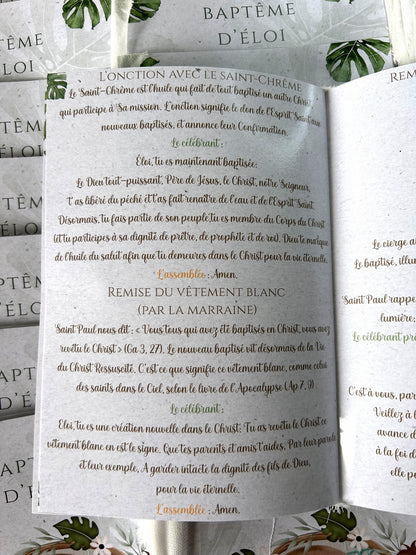 BAPTÊME
D'ÉLOI
BAPTÊME
D'ÉLOI
BAPTÊME
D'ÉLOI
L'ONCTION AVEC LE SAINT-CHRÊME
Le Saint-Chrême est l'huile qui fait de tout baptisé un autre Christ
qui participe à Sa mission. L'onction signifie le don de l'Esprit Saint aux
nouveaux baptisés, et annonce leur Confirmation.
Le célébrant :
Éloi, tu es maintenant baptisée:
Le Dieu tout-puissant, Père de Jésus, le Christ, notre Seigneur,
t'as libéré du péché et t'as fait renaître de l'eau et de l'Esprit Saint.
Désormais, tu fais partie de son peuple, tu es membre du Corps du Christ
(et tu participes à sa dignité de prêtre, de prophète et de roi). Dieu te marque
de l'huile du salut afin que tu demeures dans le Christ pour la vie éternelle.
L'assemblée : Amen.
REMISE DU VÊTEMENT BLANC
(PAR LA MARRAINE)
Saint Paul nous dit : « Vous tous qui avez été baptisés en Christ, vous avez
revêtu le Christ » (Ga 3, 27). Le nouveau baptisé vit désormais de la Vie
du Christ Ressuscité. C'est ce que signifie ce vêtement blanc, comme celui
des saints dans le Ciel, selon le livre de l'Apocalypse (Ap 7, 9)
Le célébrant :
Eloi, tu es une création nouvelle dans le Christ: Tu as revêtu le Christ ce
vêtement blanc en est le signe. Que tes parents et amis t'aides, Par leur parole
et leur exemple, A garder intacte la dignité des fils de Dieu,
pour la vie éternelle.
L'assemblée : Amen.
REM
Le cierge a
Le baptisé, illu
Saint Paul rappe
lumière;
Le célébrant pr
C'est à vous, par
Veillez à
avance d
à la foi d
et
BAPT
D'É
BAPT
D'É
APTÊ
D'ÉL
APTÊ
D'ÉL